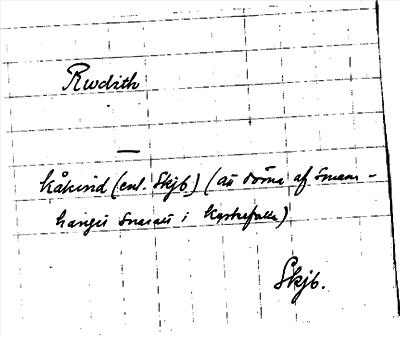 Rwdzth
—
Kåkind (enl. Skjb) (att döma af sman-
hanget snarast i Kyrkefalla)
Skjb.